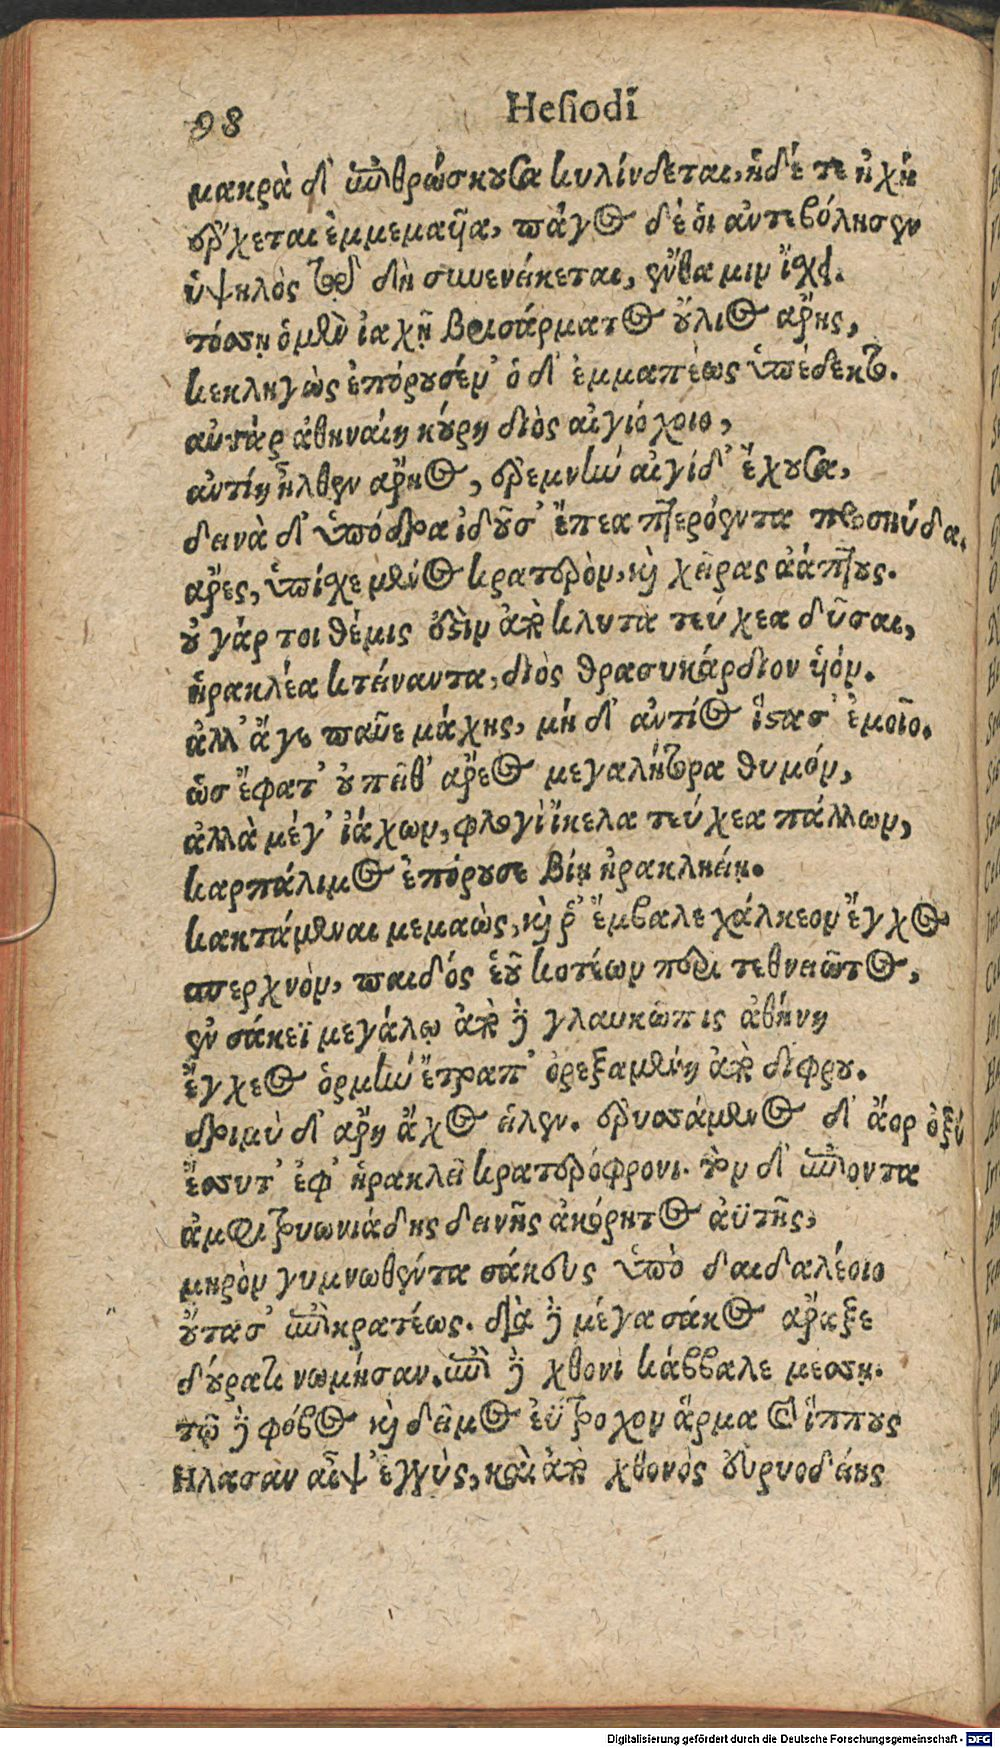 98 Hesiodi
μακρὰ δ' ἐπιθρώσκουσα κυλίνδεται, ἡ δέ τε ἠχῇ
ἔρχεται ἐμμεμαυῖα, πάγος δέ οἱ ἀντεβόλησεν
ὑψηλὸς τῷ δὴ συνενείκεται, ἔνθα μιν ἴσχει.
τόσσῃ ὁ μὲν ἰαχῇ βρισάρματος οὔλιος ἄρης,
κεκληγὼς ἐπόρουσέν· ὁ δ' ἐμμαπέως ὑπέδεκτο.
αὐτὰρ ἀθηναίη κούρη διὸς αἰγιόχοιο,
ἀντίη ἦλθεν ἄρηος, ἐρεμνὴν αἰγίδ' ἔχουσα,
δεινὰ δ' ὑπόδρα ἰδοῦσ' ἔπεα πτερόεντα προσηύδα.
ἄρες, ὑπίσχε μένος κρατερὸν, καὶ χεῖρας ἀάπτους.
οὐ γάρ τοι θέμις ἐστὶν ἀπὸ κλυτὰ τεύχεα δῦσαι,
ἡρακλέα κτείναντα, διὸς θρασυκάρδιον υἱόν.
ἀλλ' ἄγε παῦε μάχης, μὴ δ' ἀντίος ἵστασ' ἐμοῖο.
ὣς ἔφατ' οὐ πεῖθ' ἄρεος μεγαλήτορα θυμόν,
ἀλλὰ μέγ' ἰάχων, φλογὶ ἴκελα τεύχεα πάλλων,
καρπάλιμος ἐπόρουσε βίῃ ἡρακληείῃ.
κακτάμεναι μεμαὼς, καὶ ῥ' ἔμβαλε χάλκεον ἔγχος
σπερχνὸν, παιδός ἑοῦ κοτέων περὶ τεθνειῶτος,
ἐν σάκεϊ μεγάλῳ ἀπὸ δὲ γλαυκῶπις ἀθήνη
ἔγχεος ὁρμὴν ἔτραπ' ὀρεξαμένη ἀπὸ δίφρου.
δριμὺ δ' ἄρη ἄχος εἷλεν. ἐρυσσάμενος δ' ἄορ ὀξύ
ἔσσυτ' ἐφ' ἡρακλεῖ κρατερόφρονι. τὸν δ' ἐπιόντα
ἀμφιτρυωνιάδης δεινῆς ἀκόρητος ἀϋτῆς,
μηρὸν γυμνωθέντα σάκευς ὑπὸ δαιδαλέοιο
οὔτασ' ἐπικρατέως. διὰ δὲ μέγα σάκος ἄραξε
δούρατι νωμήσαν. ἐπὶ δὲ χθονὶ κάββαλε μέσσῃ.
τῷ δὲ φόβος καὶ δεῖμος ἐΰτροχον ἅρμα καὶ ἵππους
ἤλασαν αἶψ' ἐγγὺς, καὶ ἀπὸ χθονὸς εὐρυοδείης
Digitalisierung gefördert durch die Deutsche Forschungsgemeinschaft - DFG